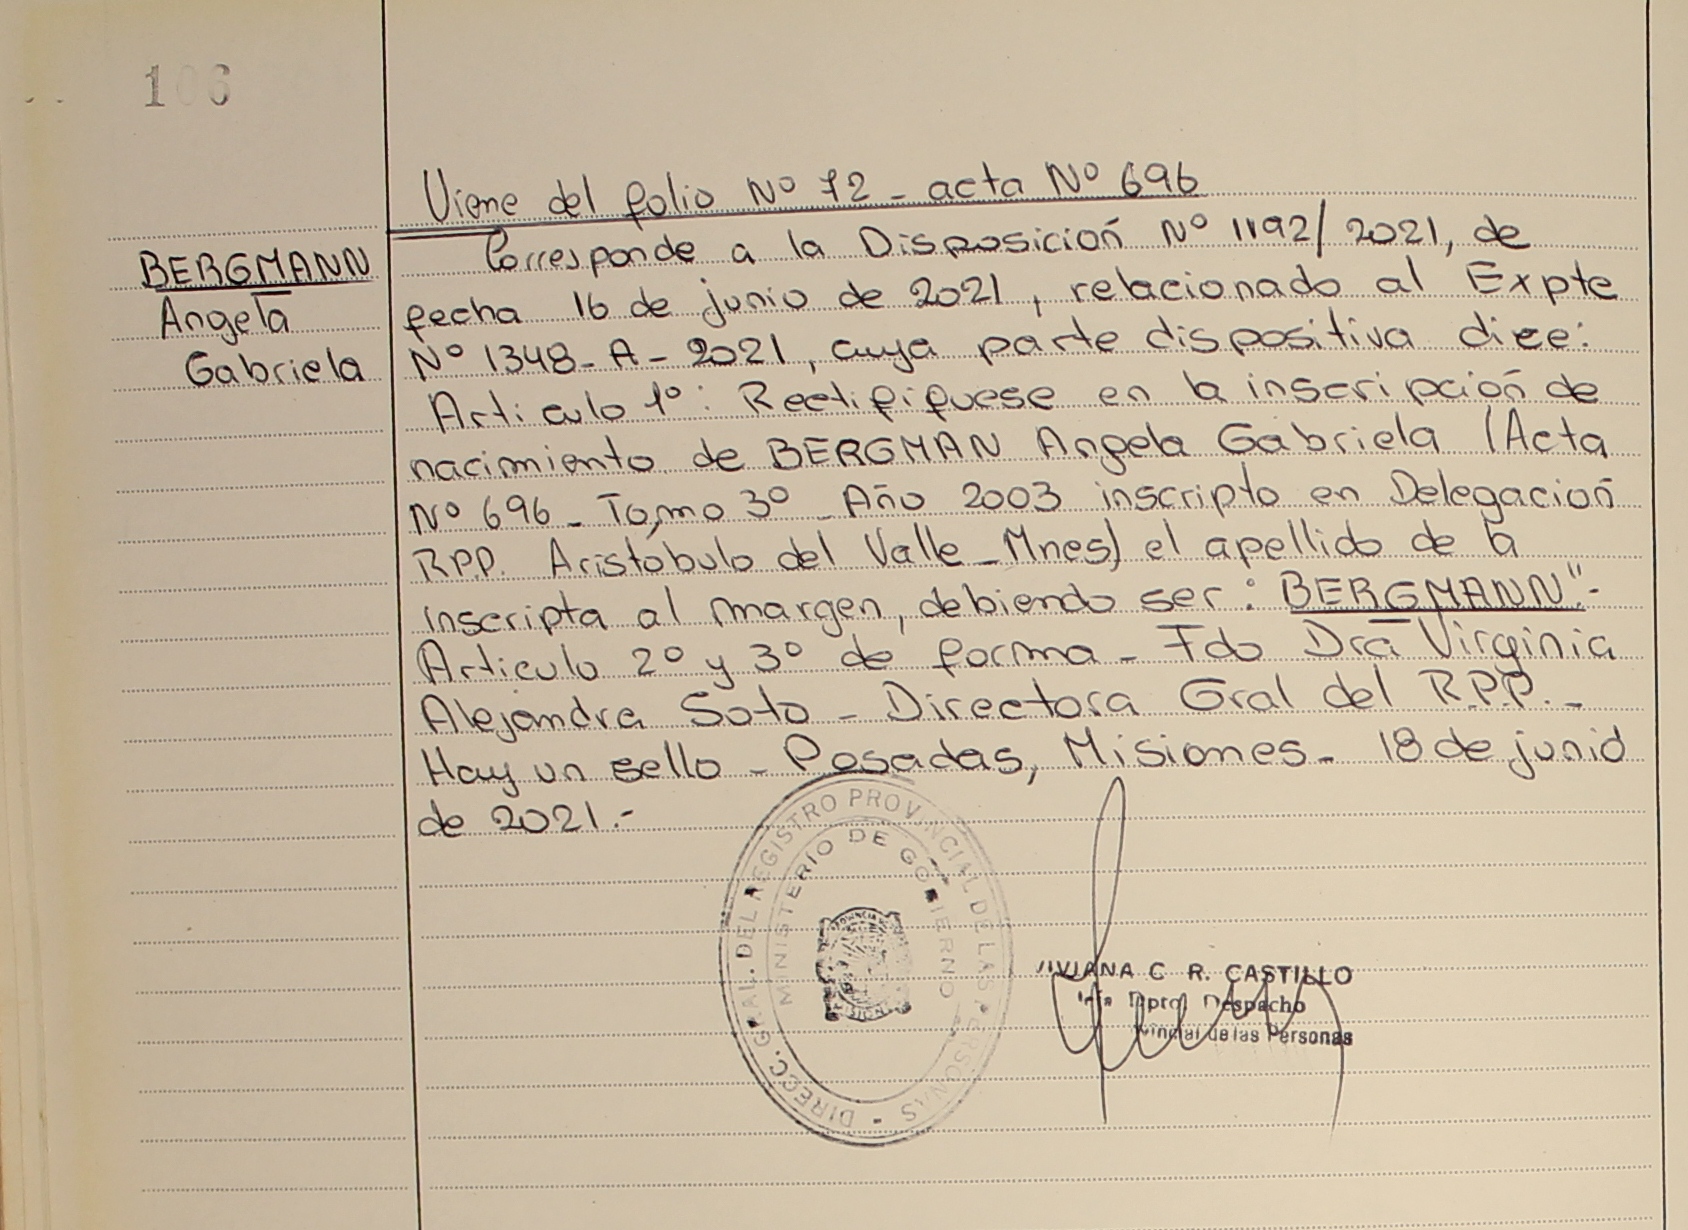 106
Viene del folio Nº 72 - acta Nº 696
BERGMANN
Angela
Gabriela
Corresponde a la Disposición Nº 1192/2021, de
fecha 16 de junio de 2021, relacionado al Expte
Nº 1348-A-2021, cuya parte dispositiva dice:
Articulo 1º: Rectififuese en la inscripción de
nacimiento de BERGMAN Angela Gabriela (Acta
Nº 696 - Tomo 3º - Año 2003 inscripto en Delegación
RPP. Aristóbulo del Valle - Mnes) el apellido de la
inscripta al margen, debiendo ser: BERGMANN".-
Articulo 2º y 3º de forma - Fdo Dra Virginia
Alejandra Soto - Directora Gral del R.P.P. -
Hay un sello - Posadas, Misiones - 18 de junio
de 2021.-
DIRECC. GRAL. DEL REGISTRO PROVINCIAL DE LAS PERSONAS -
MINISTERIO DE GOBIERNO
VIVIANA C R. CASTILLO
Despacho
de las Personas